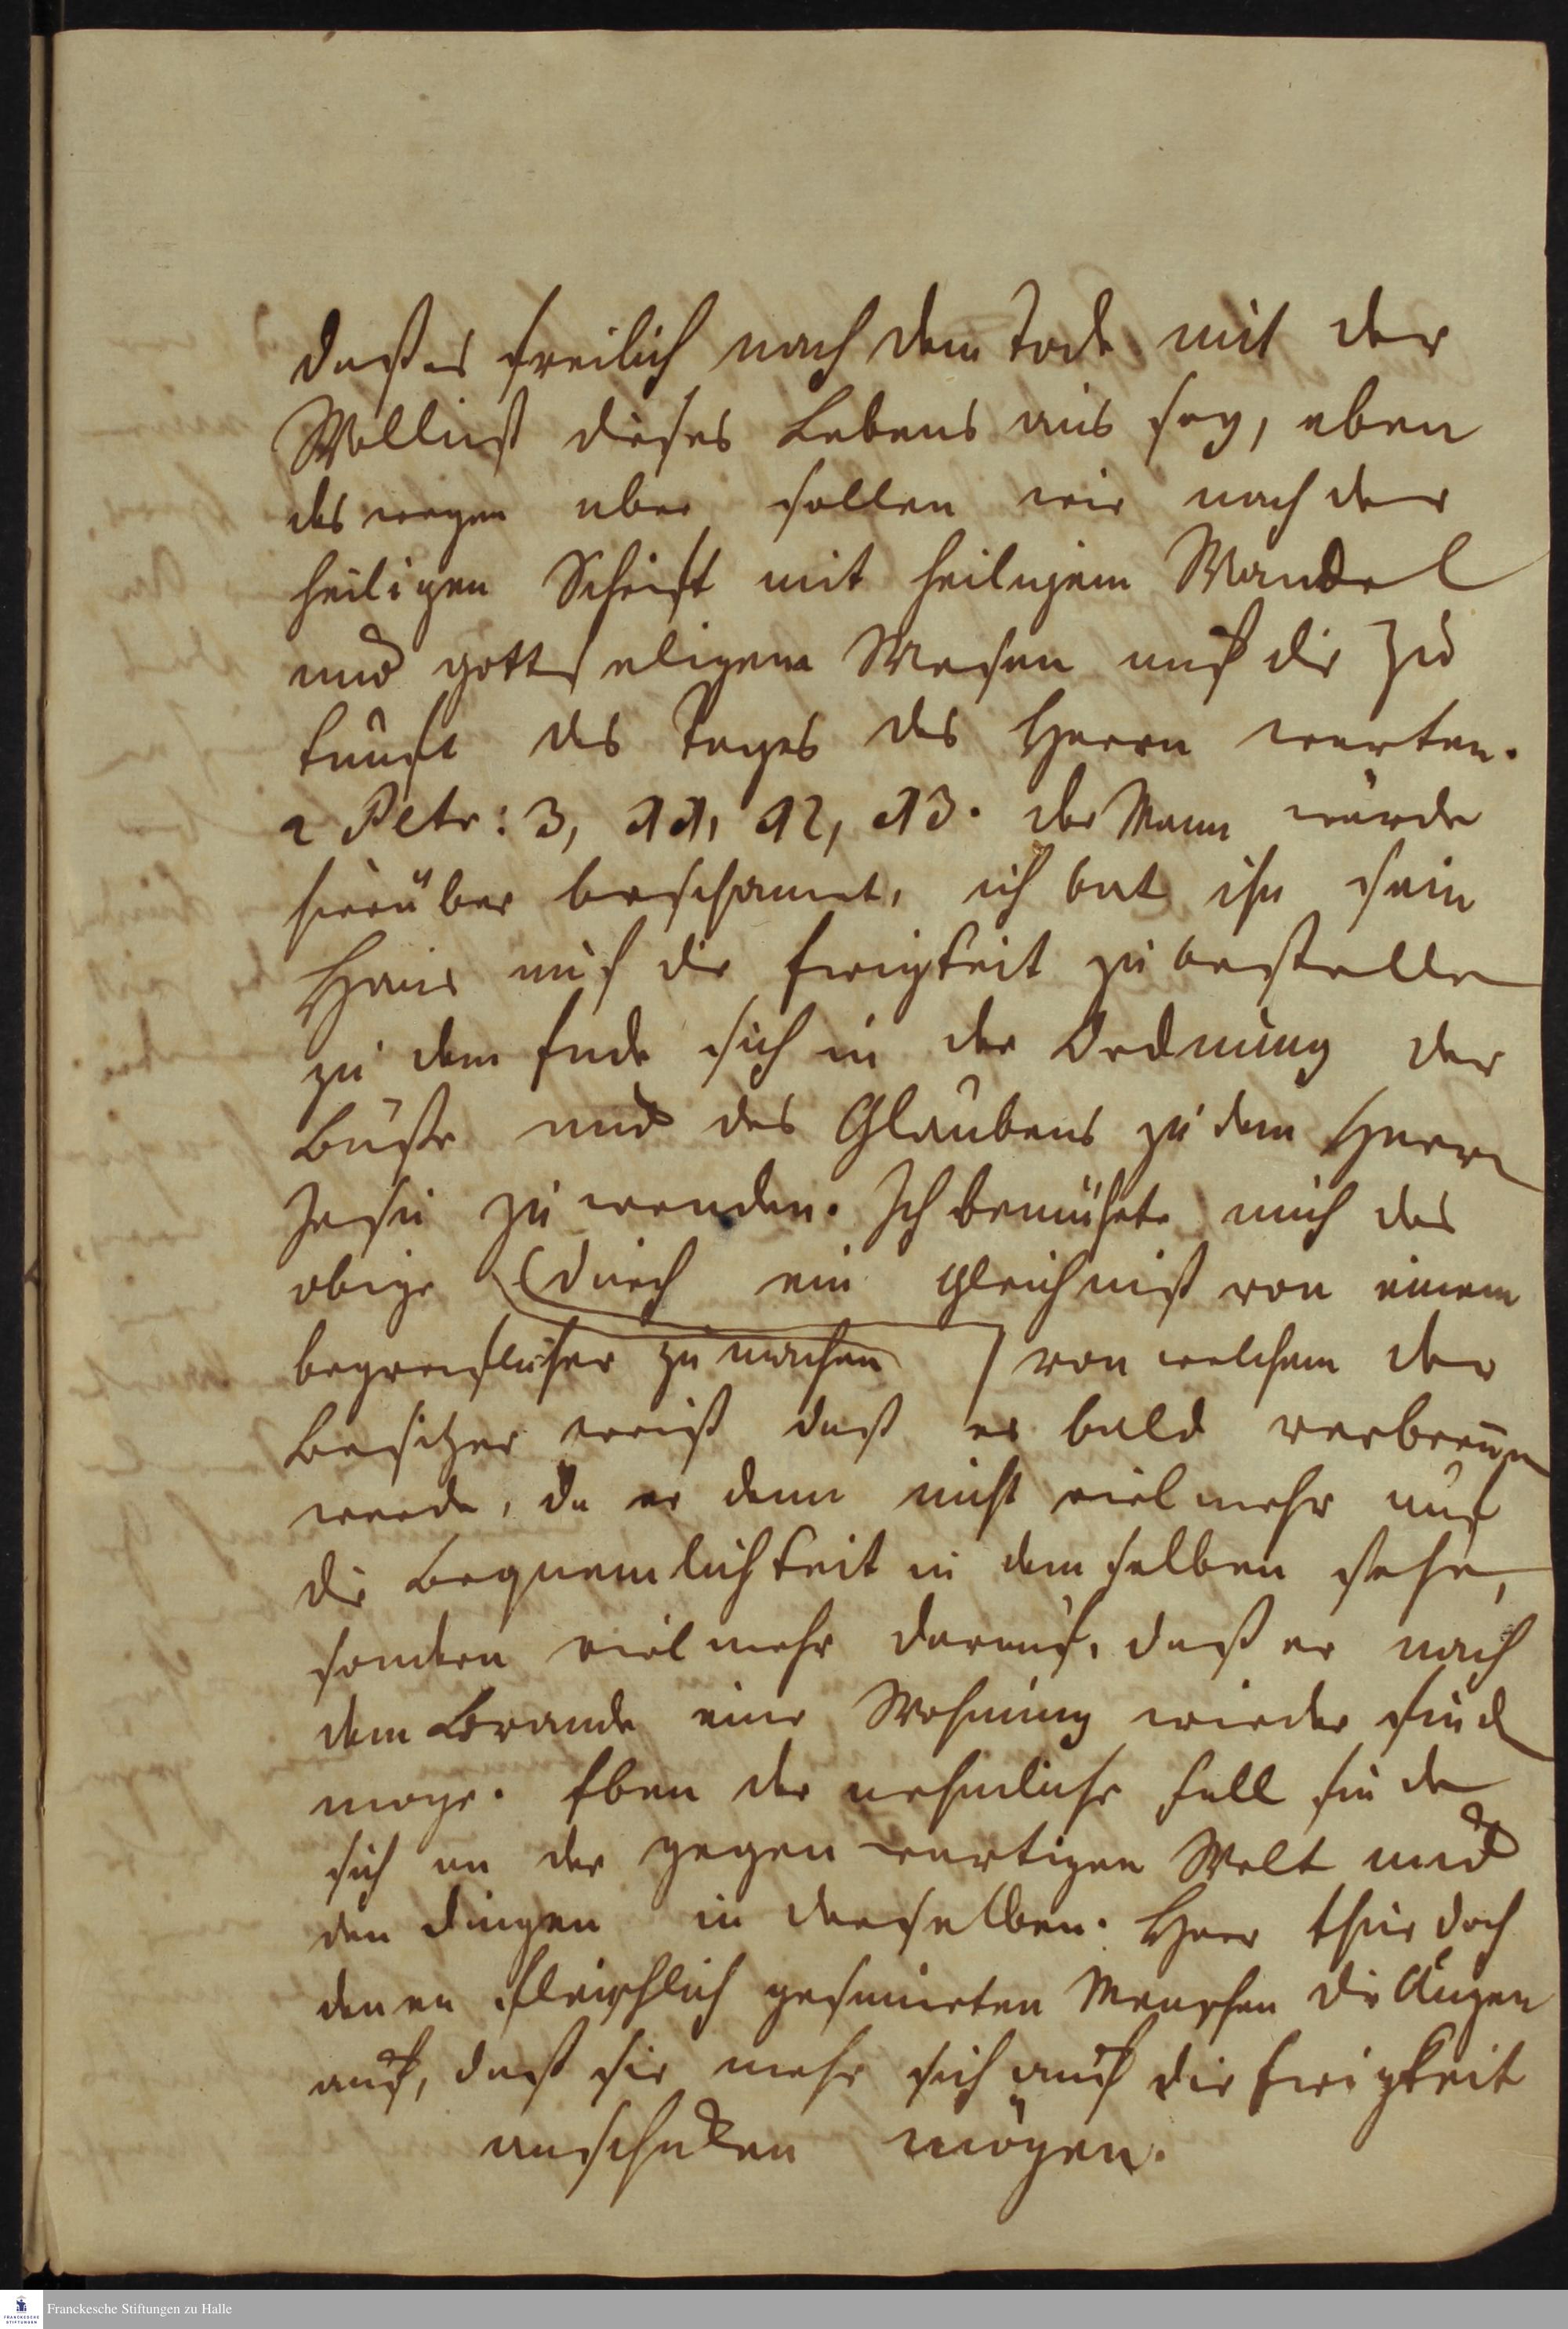 daß es freilich nach dem Tode mit der
Wollust dieses Lebens aus sey, eben
deswegen aber sollen wir nach der
heiligen Schrift mit heiligem Wandel
und gottseligem Wesen auf die Zu
kunft des Tages des Herrn warten.
2 Petr: 3, 11, 12, 13. der Mann wurde
hierüber beschämt, ich bat ihn sein
Haus auf die Ewigkeit zu bestellen
zu dem Ende sich in der Ordnung der
Buße und des Glaubens zu dem Herrn
Jesu zu wenden. Ich bemühete mich das
obige (durch ein Gleichniß von einem
begreiflicher zu machen) von welchem der
Besitzer weiß daß es bald verbrennen
werde, da er denn nicht vielmehr auf
die Bequemlichkeit in demselben sehe,
sondern vielmehr darauf, daß er nach
dem Brande eine Wohnung wieder finden
moge. Eben der nehmliche Fall finde
sich an der gegenwartigen Welt und
den Dingen in derselben. Herr thue doch
denen fleischlich gesinneten Menschen die Augen
auf, daß sie mehr sich auf die Ewigkeit
anschicken mögen.
Franckesche Stiftungen zu Halle